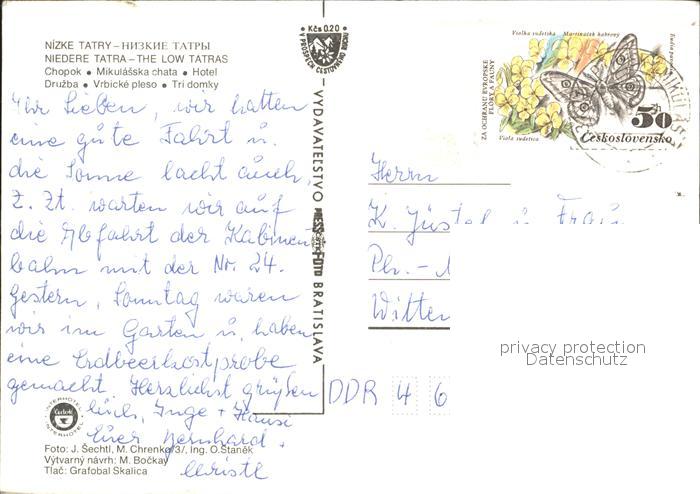 NÍZKE TATRY – НИЗКИЕ ТАТРЫ
NIEDERE TATRA – THE LOW TATRAS
Chopok • Mikulášska chata • Hotel
Družba • Vrbické pleso • Tri domky
Ihr Lieben, wir hatten
eine gute Fahrt u.
die Sonne lacht auch.
Z. Zt. warten wir auf
die Abfahrt der Kabinen
bahn mit der Nr. 24.
Gestern, Sonntag waren
wir im Garten u. haben
eine Erdbeerkostprobe
gemacht. Herzlichst grüßen
Euch, Inge + Hansi
Euer Bernhard +
Christl
INTERHOTEL
Foto: J. Šechtl, M. Chrenko/3/, Ing. O. Staněk
Výtvarný návrh: M. Bočkay
Tlač: Grafobal Skalica
Kčs 0.20
V PROSPECH CESTOVNÉHO RUCHU
VYDAVATEĽSTVO
PRESSFOTO
BRATISLAVA
Violka sudetská
Martináček habrový
ZA OCHRANU EVROPSKÉ
FLÓRY A FAUNY
Viola sudetica
Eudia pavonia
50h
Československo
Herrn
K. Jüstel u. Frau
Witten
DDR 4 6
privacy protection
Datenschutz